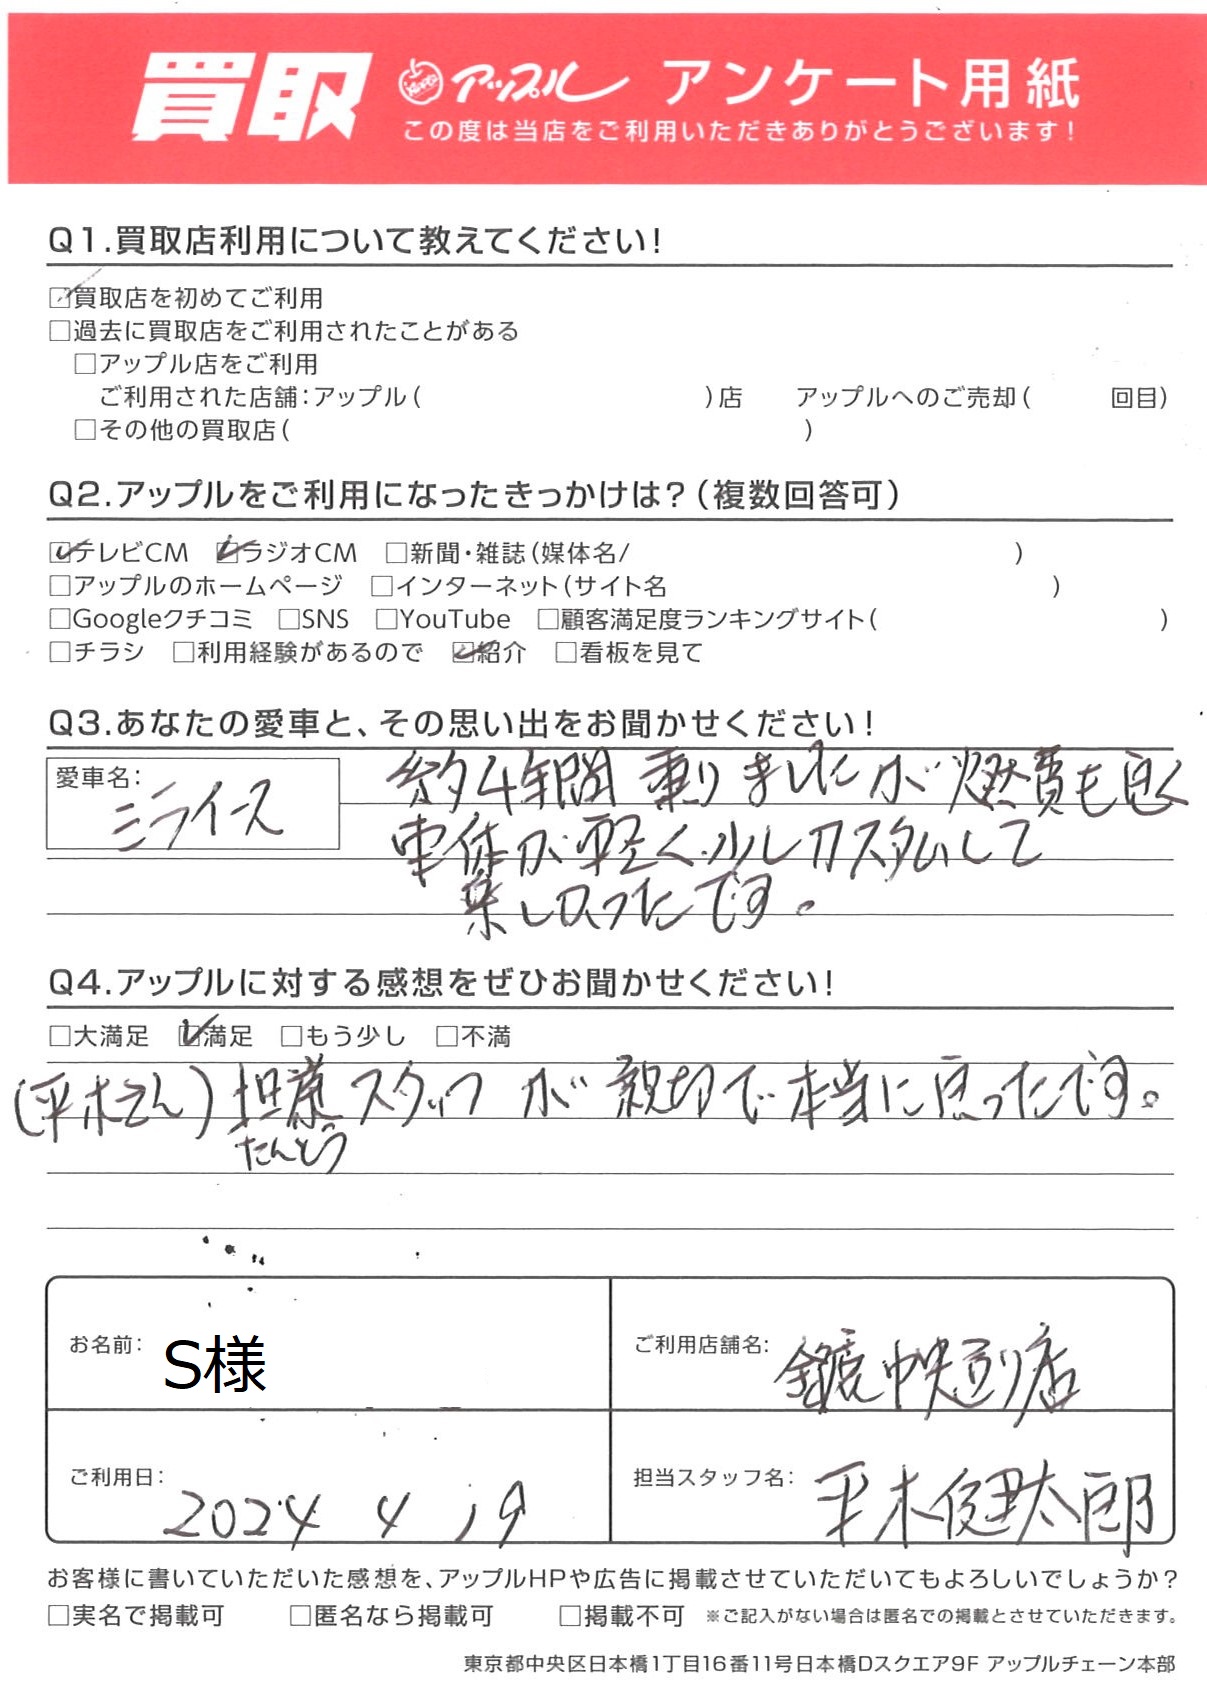 買取 アップル アンケート用紙
この度は当店をご利用いただきありがとうございます!
Q1.買取店利用について教えてください!
☑買取店を初めてご利用
□過去に買取店をご利用されたことがある
□アップル店をご利用
ご利用された店舗:アップル( )店 アップルへのご売却( 回目)
□その他の買取店( )
Q2.アップルをご利用になったきっかけは?(複数回答可)
☑テレビCM ☑ラジオCM □新聞・雑誌(媒体名/ )
□アップルのホームページ □インターネット(サイト名 )
□Googleクチコミ □SNS □YouTube □顧客満足度ランキングサイト( )
□チラシ □利用経験があるので ☑紹介 □看板を見て
Q3.あなたの愛車と、その思い出をお聞かせください!
愛車名: ミライース
約4年間 乗りましたが 燃費も良く
車体が軽く少しカスタムして
楽しかったです。
Q4.アップルに対する感想をぜひお聞かせください!
□大満足 ☑満足 □もう少し □不満
(平木さん) 担当スタッフ が 親切で 本当に良かったです。
たんとう
お名前: S様
ご利用店舗名: 中央通り店
ご利用日: 2024 4 19
担当スタッフ名: 平木健太郎
お客様に書いていただいた感想を、アップルHPや広告に掲載させていただいてもよろしいでしょうか?
□実名で掲載可 □匿名なら掲載可 □掲載不可 ※ご記入がない場合は匿名での掲載とさせていただきます。
東京都中央区日本橋1丁目16番11号日本橋Dスクエア9F アップルチェーン本部